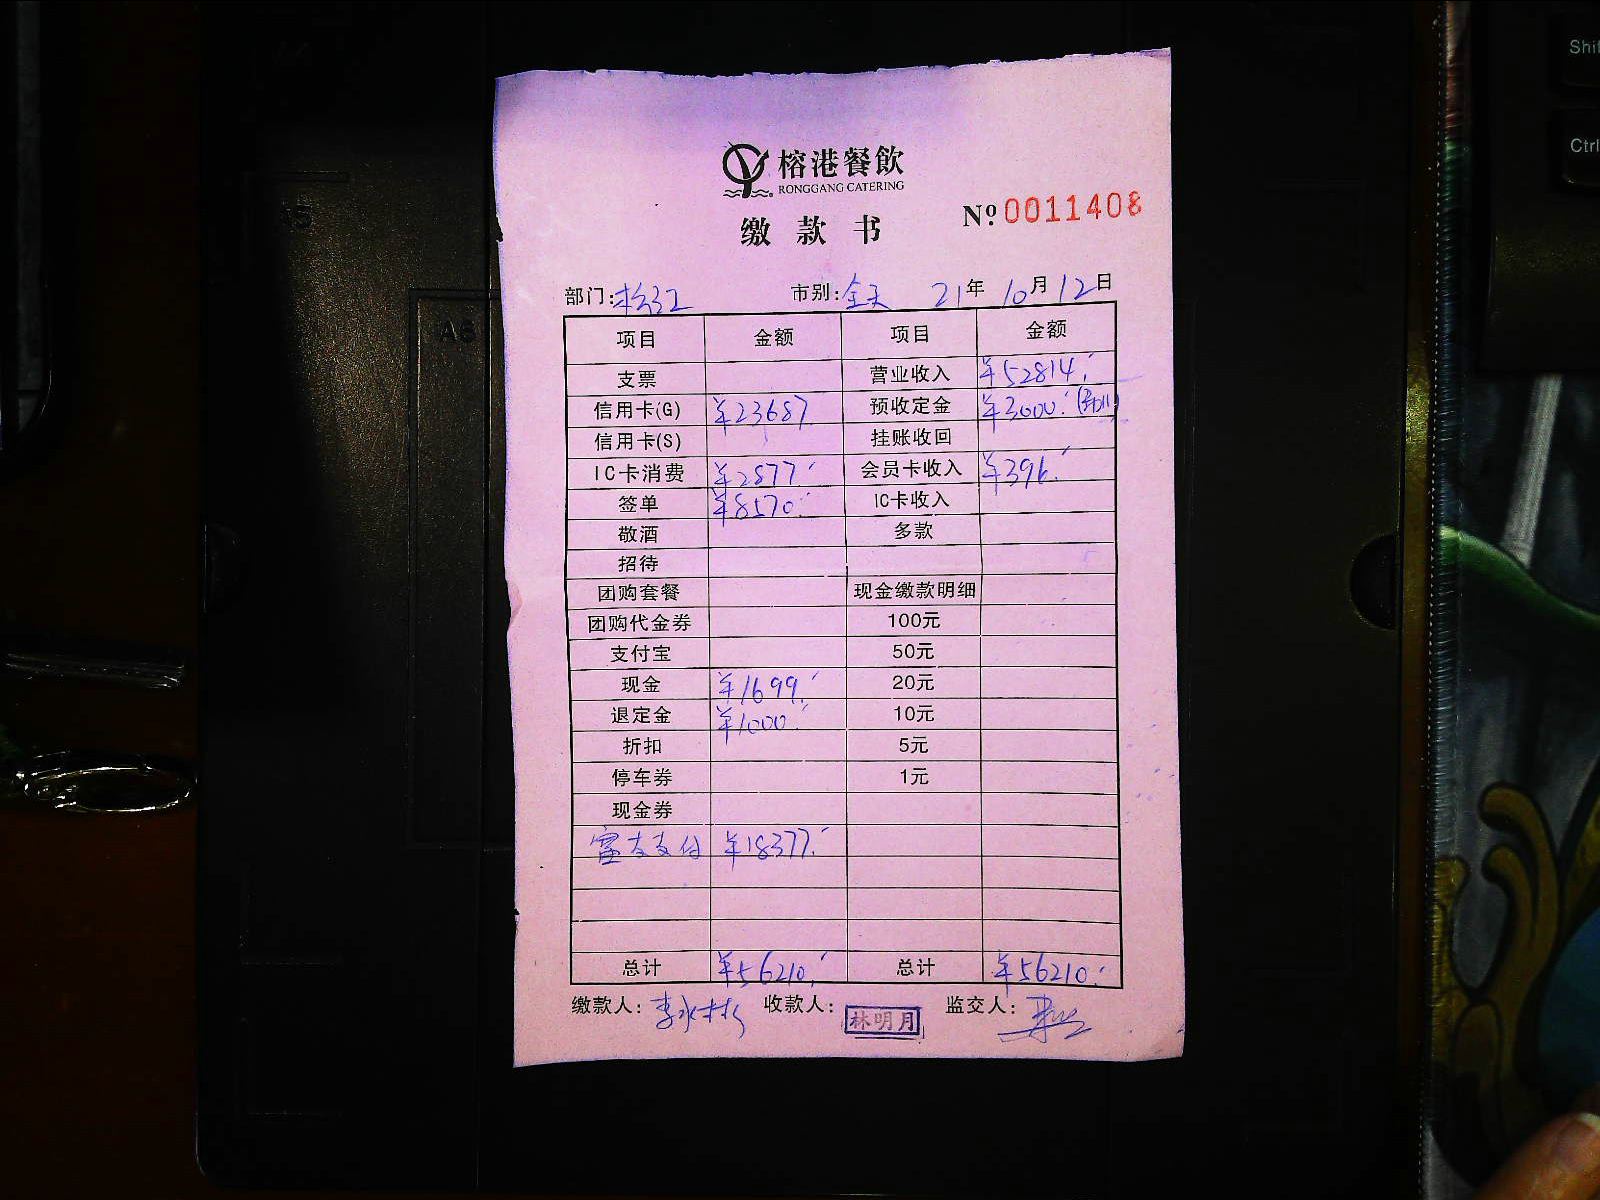 榕港餐飲
RONGGANG CATERING
缴款书
№ 0011408
部门: 松江 市别: 全天 21年 10月 12日
项目 金额 项目 金额
支票 营业收入 ¥52814.
信用卡(G) ¥23687. 预收定金 ¥3000.
信用卡(S) 挂账收回
IC卡消费 ¥2877. 会员卡收入 ¥396.
签单 ¥8570. IC卡收入
敬酒 多款
招待
团购套餐 现金缴款明细
团购代金券 100元
支付宝 50元
现金 ¥1699. 20元
退定金 ¥1000. 10元
折扣 5元
停车券 1元
现金券
富友支付 ¥18377.
总计 ¥56210. 总计 ¥56210.
缴款人: 李水彬 收款人: 林明月 监交人:
Shi
Ctrl
A6